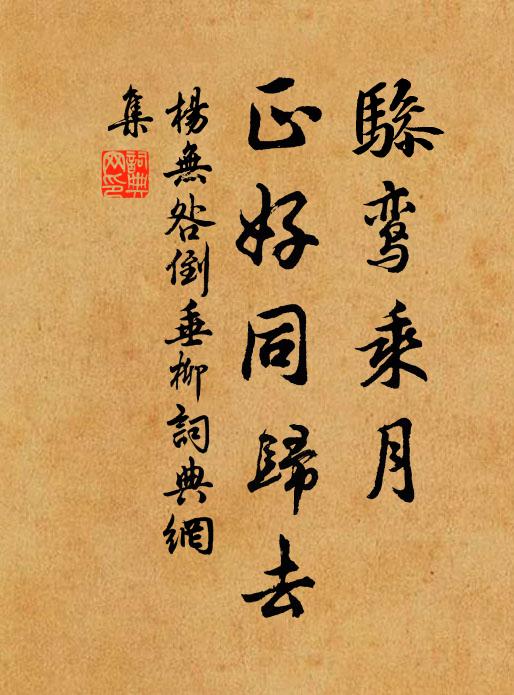 骖鸾乘月
正好同歸去
楊無咎倒垂柳詞典網
集
詞典网印